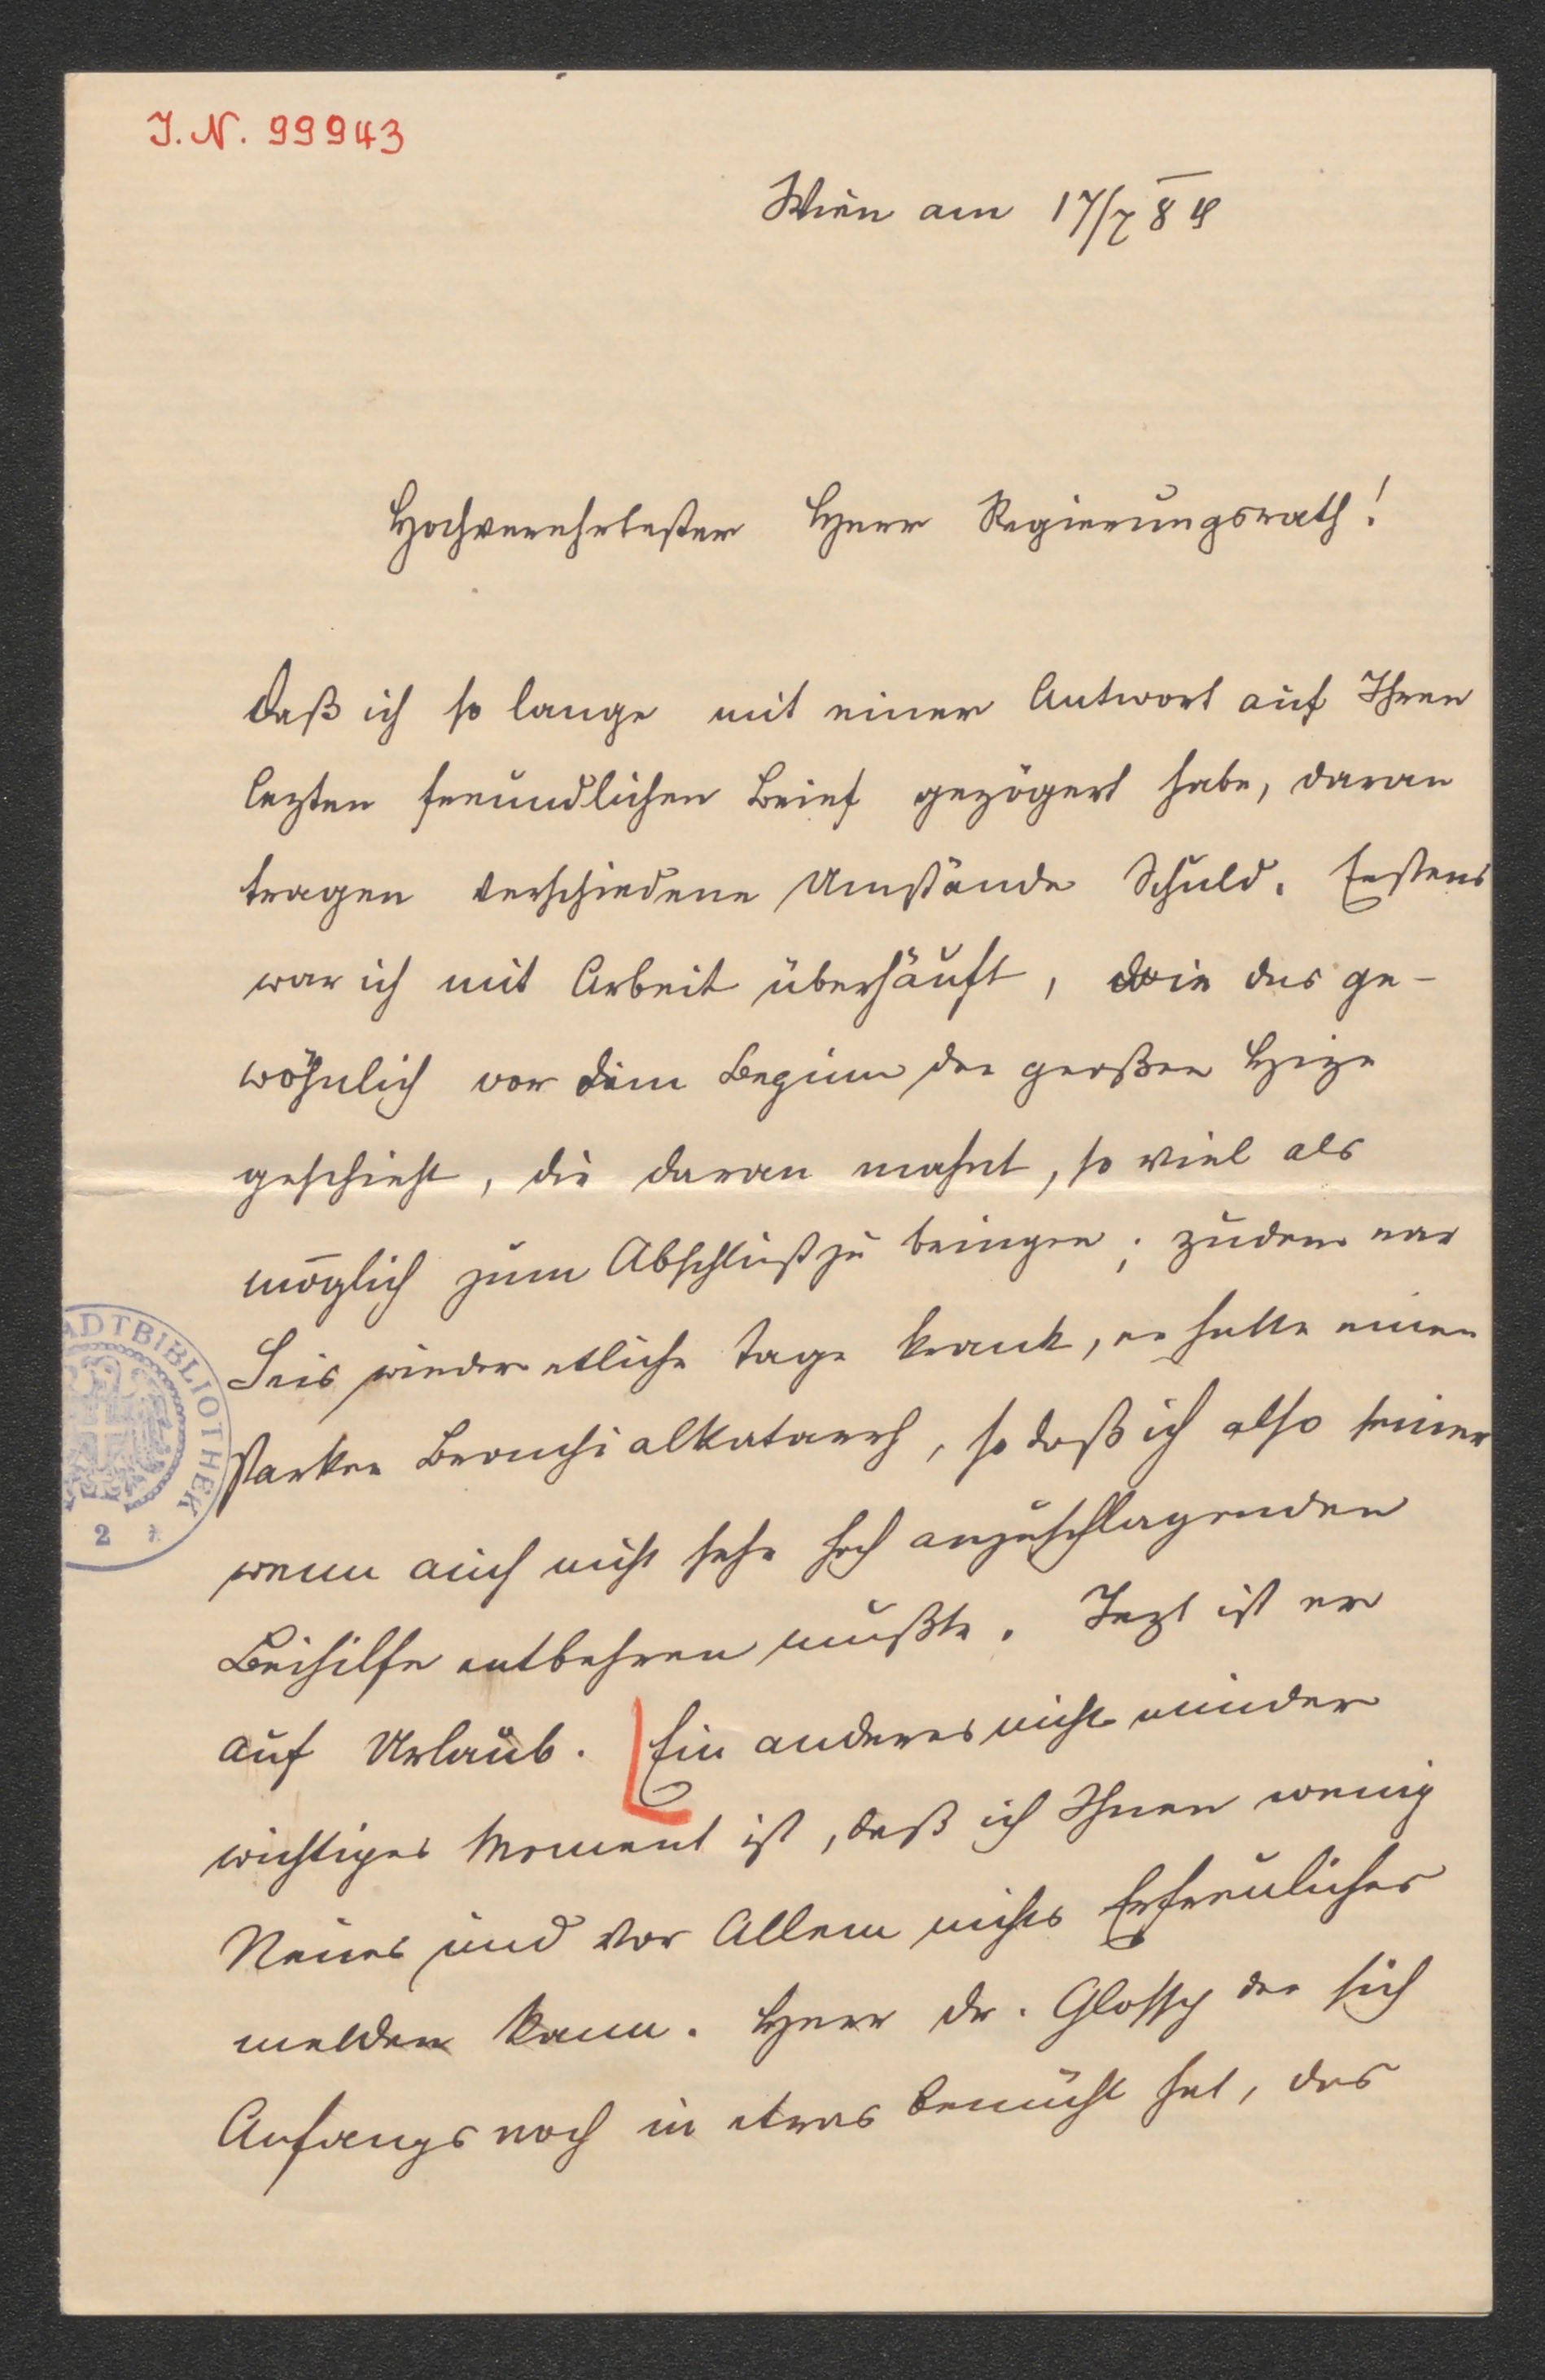 J. N. 99943
Wien am 17/7 89
Hochverehrtester Herr Regierungsrath!
Daß ich so lange mit einer Antwort auf Ihren
lezten freundlichen Brief gezögert habe, daran
tragen verschiedene Umstände Schuld. Erstens
war ich mit Arbeit überhäuft, wie das ge-
wöhnlich vor dem Beginn der großen Hize
geschieht, die daran mahnt, so viel als
möglich zum Abschluß zu bringen; zudem war
Seis wieder etliche Tage krank, er hatte einen
starken Bronchialkatarrh, so daß ich also seiner
wenn auch nicht sehr hoch anzuschlagenden
Beihilfe entbehren mußte. Jezt ist er
auf Urlaub. Ein anderes nicht minder
wichtiges Moment ist, daß ich Ihnen wenig
Neues und vor Allem nichts Erfreuliches
melden kann. Herr Dr. Glossy der sich
Anfangs noch in etwas bemüht hat, das
ADTBIBLIOTHEK
2 *